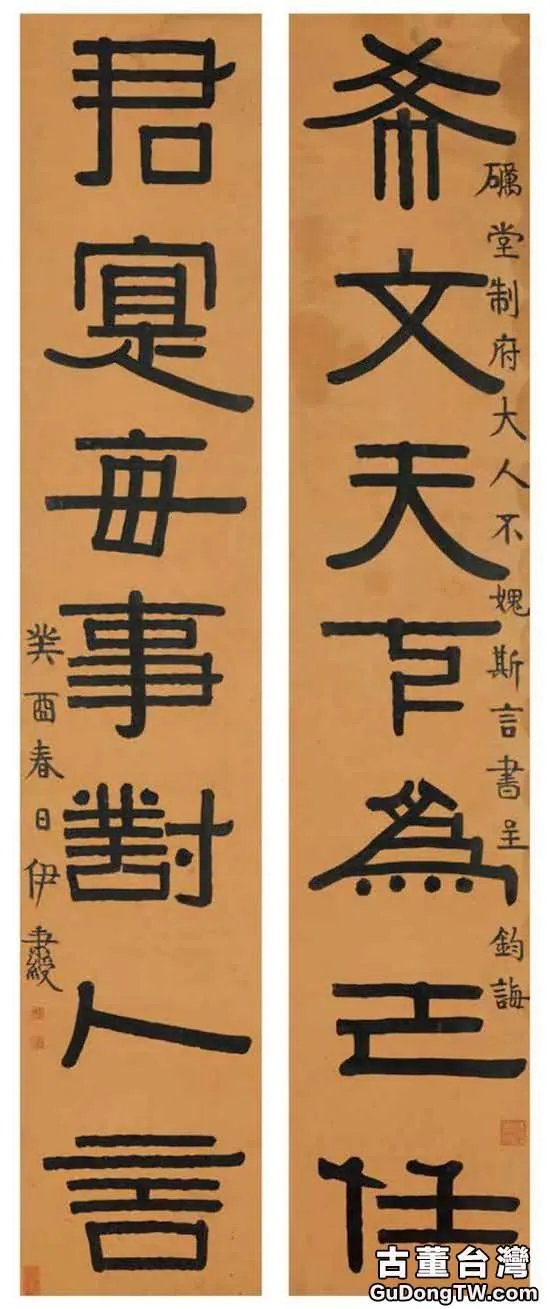 礪堂制府大人不媿斯言書呈 鈞誨
希文天下為己任
君寔每事對人言
癸酉春日伊秉綬
古董台灣
GuDongTW.com